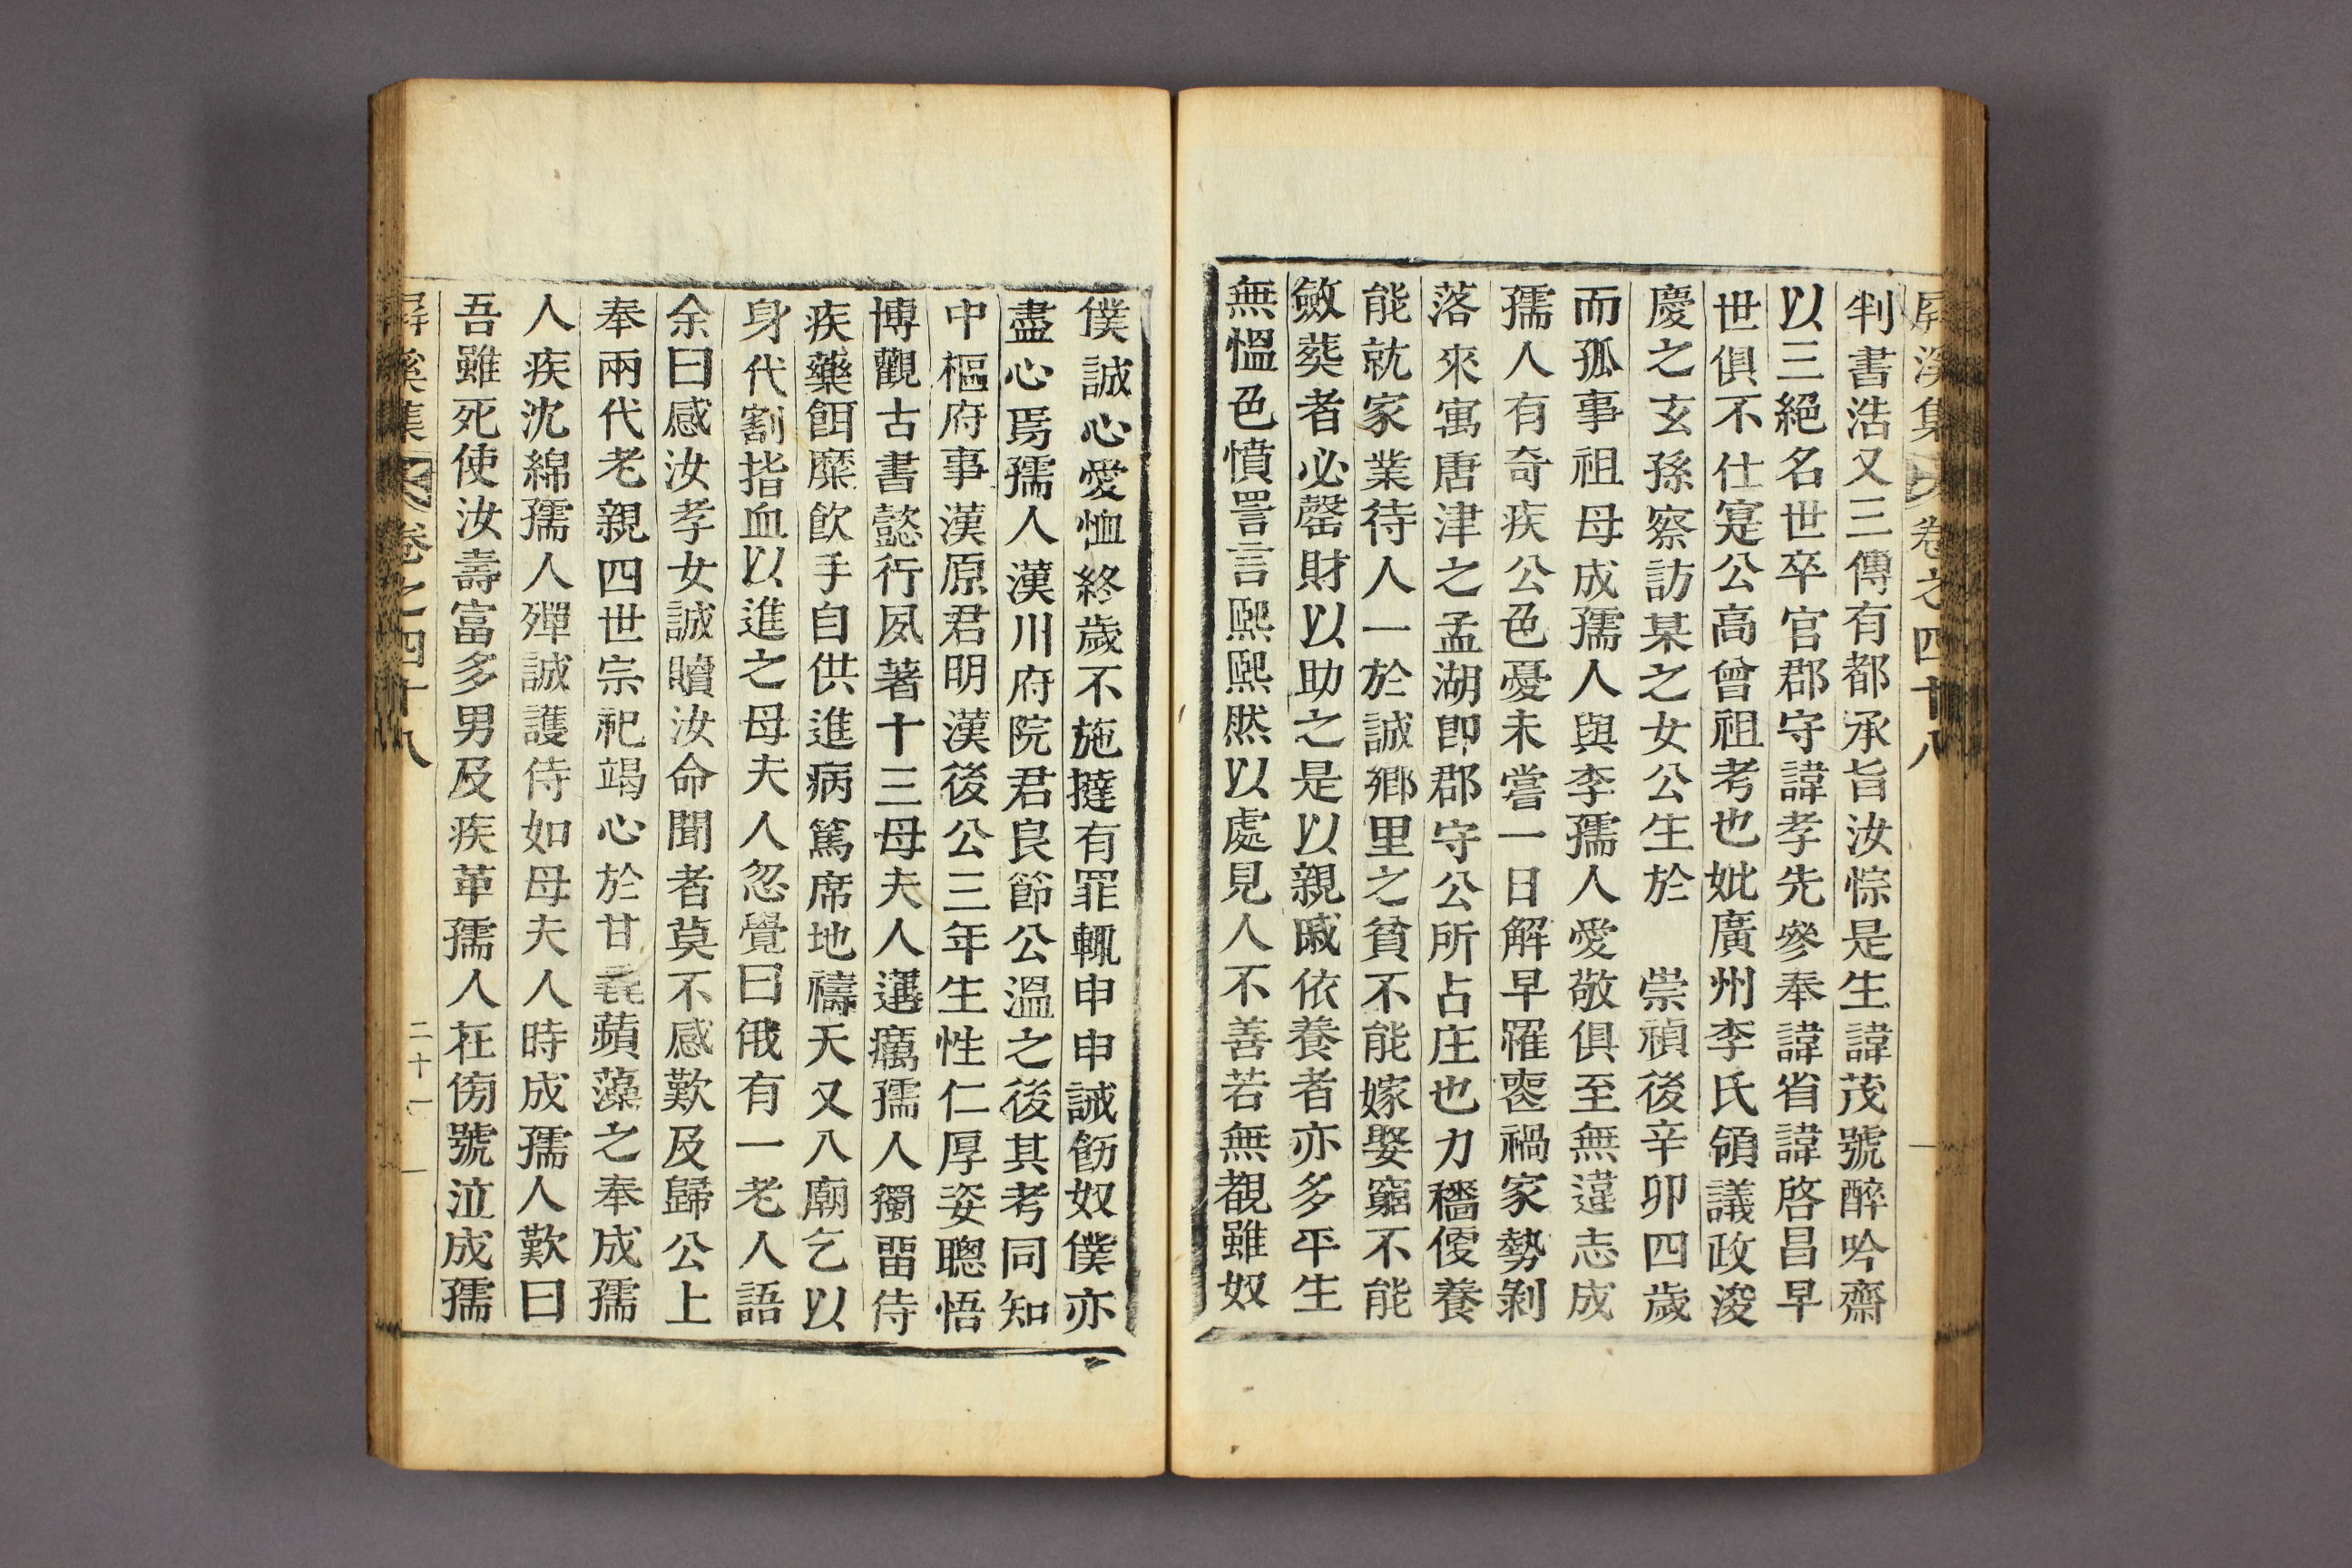 屛溪集 卷之四十八
判書浩又三傳有都承旨汝悰是生諱茂號醉吟齋
以三絕名世卒官郡守諱孝先參奉諱省諱啓昌早
世俱不仕寔公高曾祖考也妣廣州李氏領議政浚
慶之玄孫察訪某之女公生於 崇禎後辛卯四歲
而孤事祖母成孺人與李孺人愛敬俱至無違志成
孺人有奇疾公色憂未嘗一日解早罹喪禍家勢剝
落來寓唐津之孟湖卽郡守公所占庄也力穡優養
能就家業待人一於誠鄉里之貧不能嫁娶窮不能
斂葬者必罄財以助之是以親戚依養者亦多平生
無慍色憤詈言熙熙然以處見人不善若無覩雖奴
僕誠心愛恤終歲不施撻有罪輒申申誡飭奴僕亦
盡心焉孺人漢川府院君良節公溫之後其考同知
中樞府事漢原君明漢後公三年生性仁厚姿聰悟
博觀古書懿行夙著十三母夫人遘癘孺人獨留侍
疾藥餌糜飮手自供進病篤席地禱天又入廟乞以
身代割指血以進之母夫人忽覺曰俄有一老人語
余曰感汝孝女誠贖汝命聞者莫不感歎及歸公上
奉兩代老親四世宗祀竭心於甘毳蘋藻之奉成孺
人疾沈綿孺人殫誠護侍如母夫人時成孺人歎曰
吾雖死使汝壽富多男及疾革孺人在傍號泣成孺
屛溪集 卷之四十八 二十一